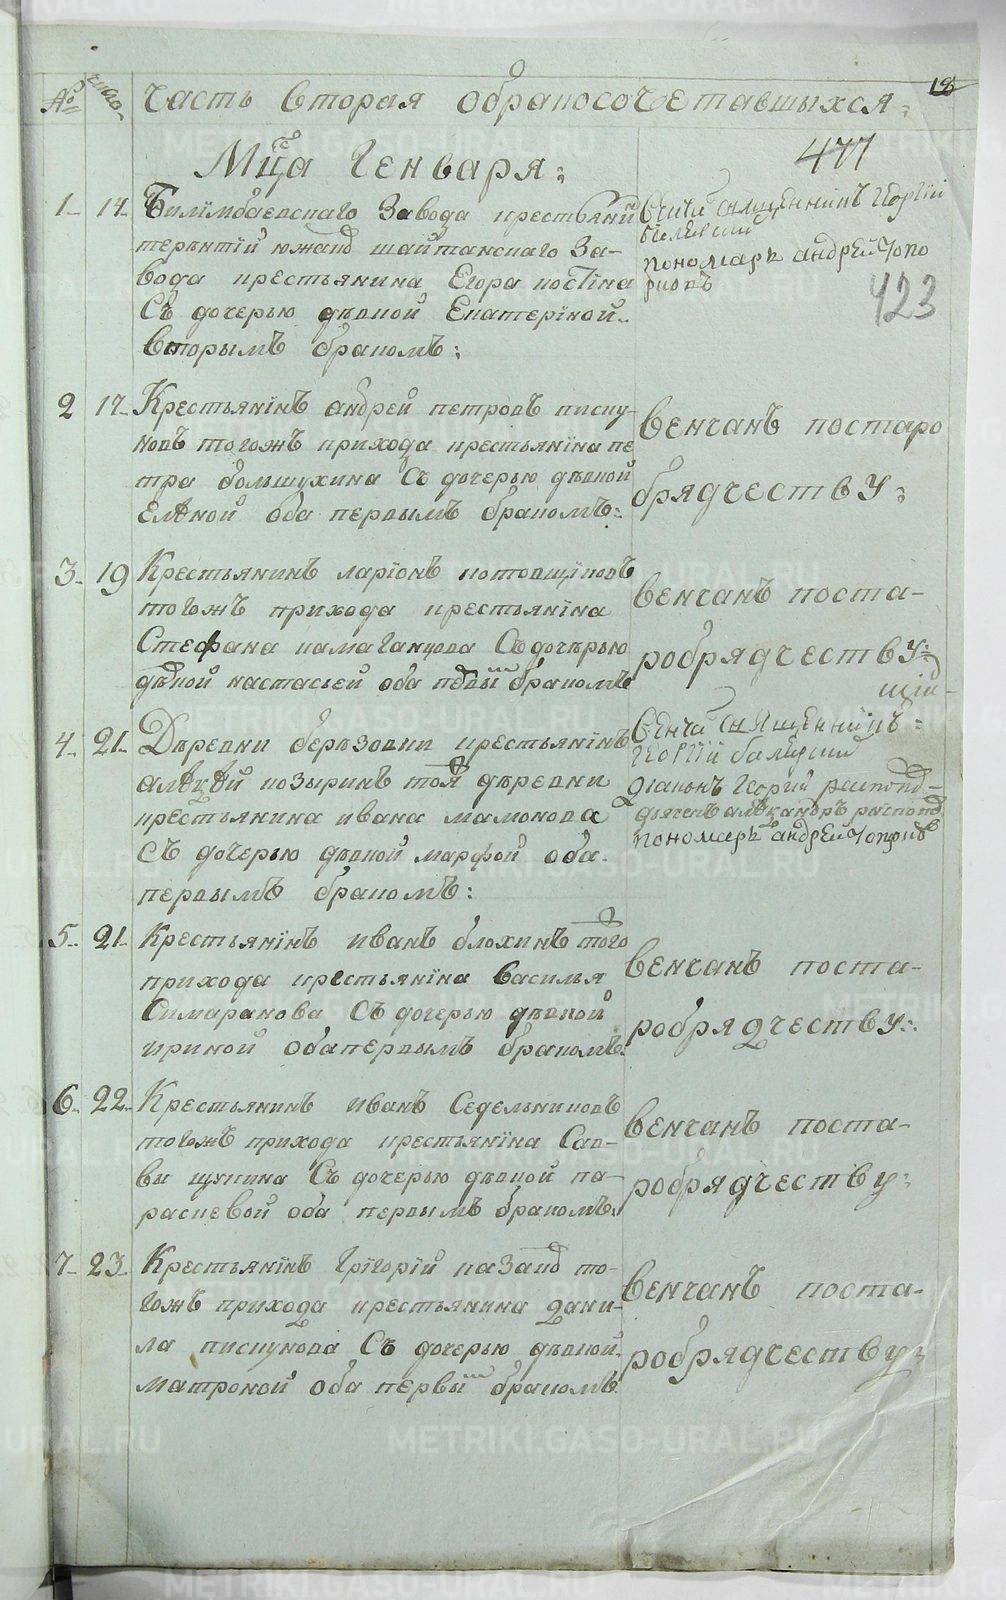 № число часть вторая обраносочетавшыхся:
18
477
423
Мц̃а Генваря:
1 14 Билїмбаевскаго завода крестьянин
терентїй южаков шайтанскаго за-
вода крестьянина Егора костїна
Съ дочерью девкой Екатерїной
вторымъ бракомъ:
Венчал священникъ Георгїй
пономарь андрей Топо
рковъ
2 17 Крестьянїнъ андрей петровъ писку-
новъ тогожъ прихода крестьянїна пе
тра большухина Съ дочерью девкой
Еленой оба первымъ бракомъ:
венчанъ постаро
брядчеству:
3 19 Крестьянинъ ларїонъ котовщїковъ
тогожъ прихода крестьянїна
Стефана камаганцова Съ дочерью
девкой настасьей оба первым бракомъ
венчанъ поста-
робрядчеству:
4 21 Деревни березовки крестьянїнъ
алеѯей козыринъ тоя ж деревни
крестьянина ивана мамонова
съ дочерью девкой марфой оба
первымъ бракомъ:
Венчал священникъ
георгїй
дїаконъ Георгий
пономарь андрей Топорковъ
5 21 Крестьянїнъ иванъ блохинъ того ж
прихода крестьянїна василья
Симаранова Съ дочерью девкой
ириной оба первымъ бракомъ:
венчанъ поста-
робрядчеству:
6 22 Крестьянинъ иванъ Седельниковъ
тогожъ прихода крестьянїна Сав-
вы щукина Съ дочерью девкой па-
расковьей оба первымъ бракомъ:
венчанъ поста-
робрядчеству:
7 23 Крестьянїнъ Грїгорїй казаков то-
гожъ прихода крестьянина дани-
ла пискунова Съ дочерью девкой
матроной оба первым бракомъ
венчанъ поста-
робрядчеству:
METRIKI.GASO-URAL.RU